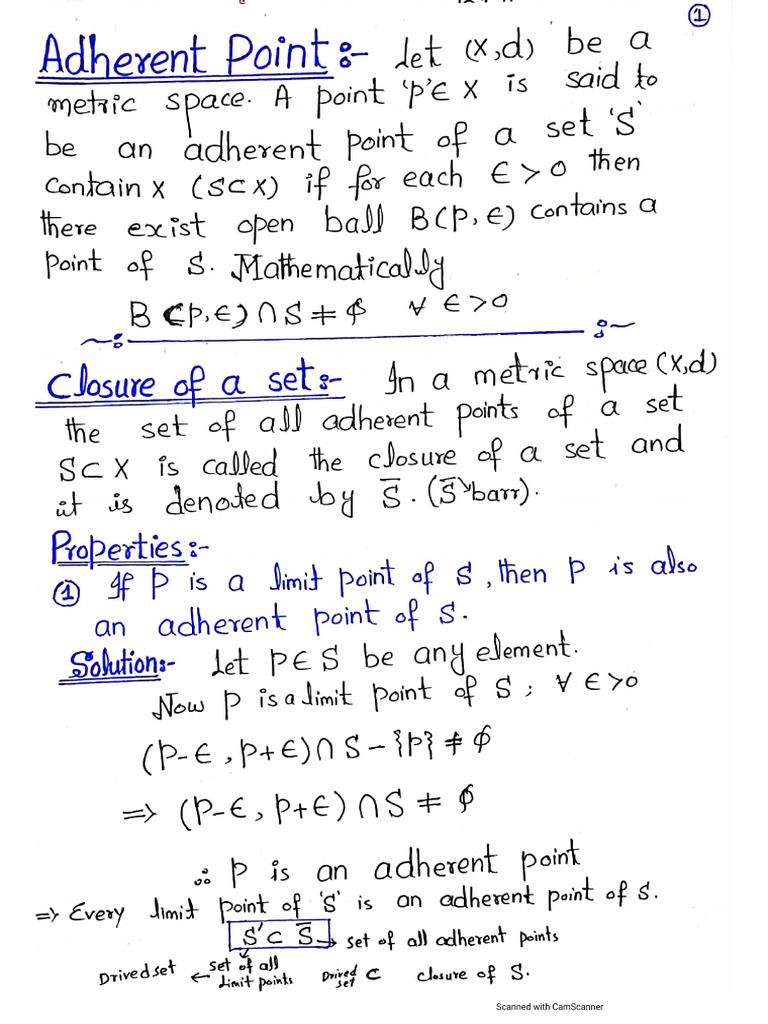 ①
Adherent Point:- Let (X,d) be a
metric space. A point 'P'∈ X is said to
be an adherent point of a set 'S'
contain X (S⊂X) if for each ∈>0 then
there exist open ball B(P,∈) contains a
point of S. Mathematically
B (P,∈)∩S≠ϕ ∀ ∈>0
Closure of a set:- In a metric space (X,d)
the set of all adherent points of a set
S⊂X is called the closure of a set and
it is denoted by S̅. (S̅ barr).
Properties:-
① If P is a limit point of S, then P is also
an adherent point of S.
Solution:- Let P∈S be any element.
Now P is a limit point of S; ∀ ∈>0
(P-∈, P+∈)∩S-{P}≠ϕ
⇒ (P-∈, P+∈)∩S≠ϕ
∴ P is an adherent point
⇒ Every limit point of 'S' is an adherent point of S.
S'⊂ S̅ → set of all adherent points
Drived set ← set of all limit points Drived set ⊂ closure of S.
Scanned with CamScanner